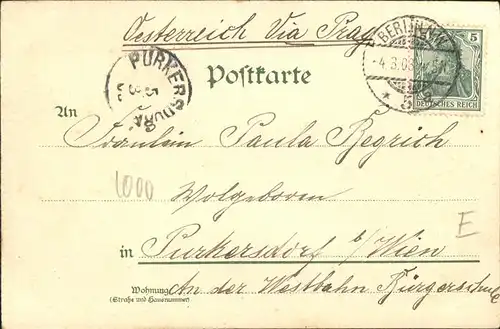 Oesterreich Via Prag
BERLIN N.W.
-4.3.03
5
DEUTSCHES REICH
PURKERSDORF
Postkarte
An
Fräulein Paula Regrich
1000
Wolgeboren
E
in Purkersdorf b/Wien
Wohnung
(Straße und Hausnummer)
An der Westbahn Bürgerschule